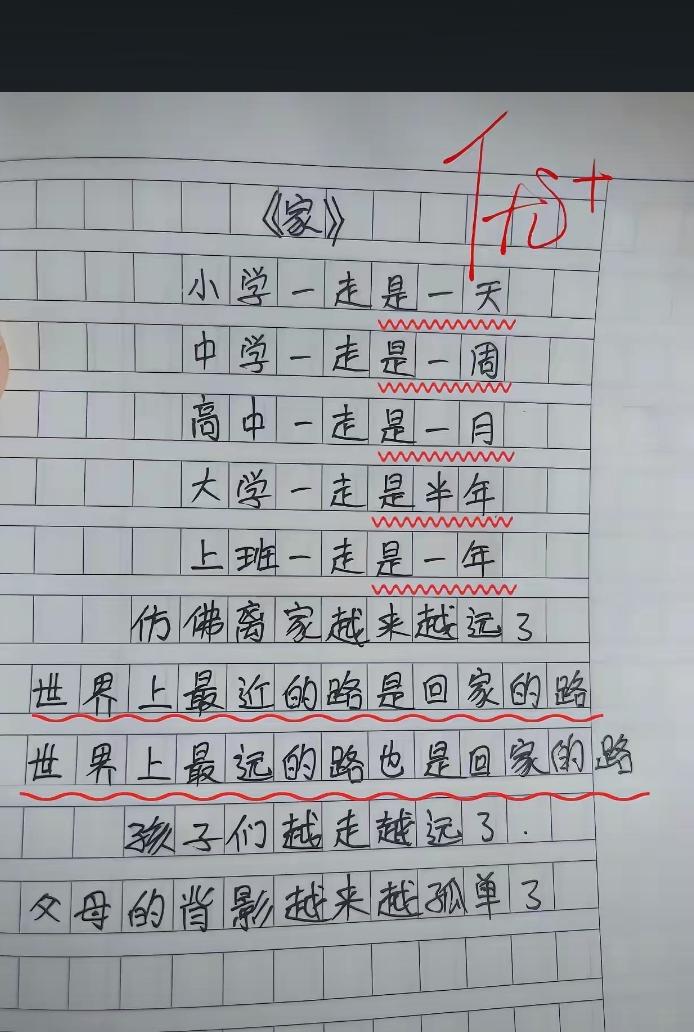 《家》
优+
小学一走是一天
中学一走是一周
高中一走是一月
大学一走是半年
上班一走是一年
仿佛离家越来越远了
世界上最近的路是回家的路
世界上最远的路也是回家的路
孩子们越走越远了.
父母的背影越来越孤单了